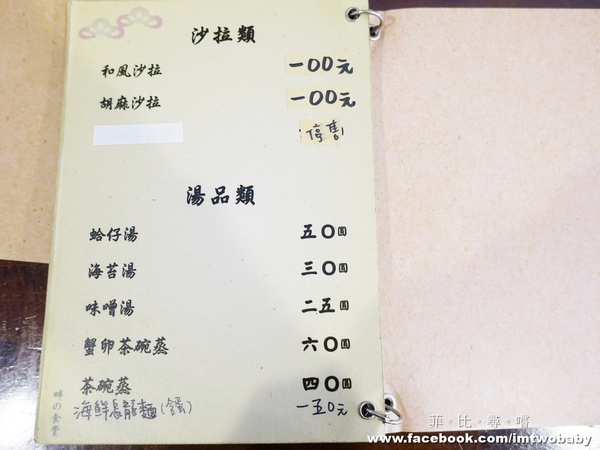 沙拉類
和風沙拉 一00元
胡麻沙拉 一00元
停售
湯品類
蛤仔湯 五0圓
海苔湯 三0圓
味噌湯 二五圓
蟹卵茶碗蒸 六0圓
茶碗蒸 四0圓
海鮮烏龍麵(含蛋) 一五0元
畔の食堂
菲。比。尋。嚐
www.facebook.com/imtwobaby